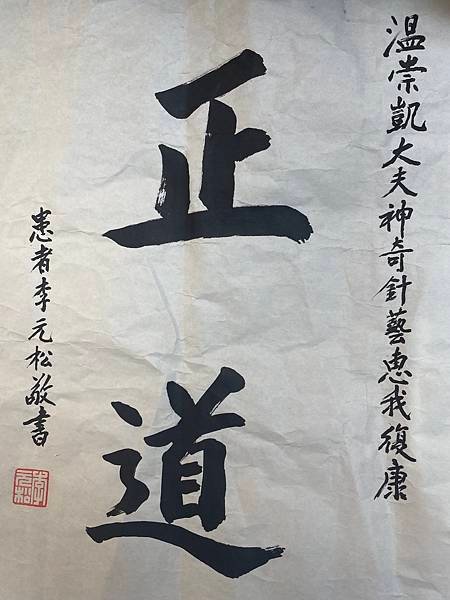 溫崇凱大夫神奇針藝惠我復康
正道
患者李元松敬書
李元松